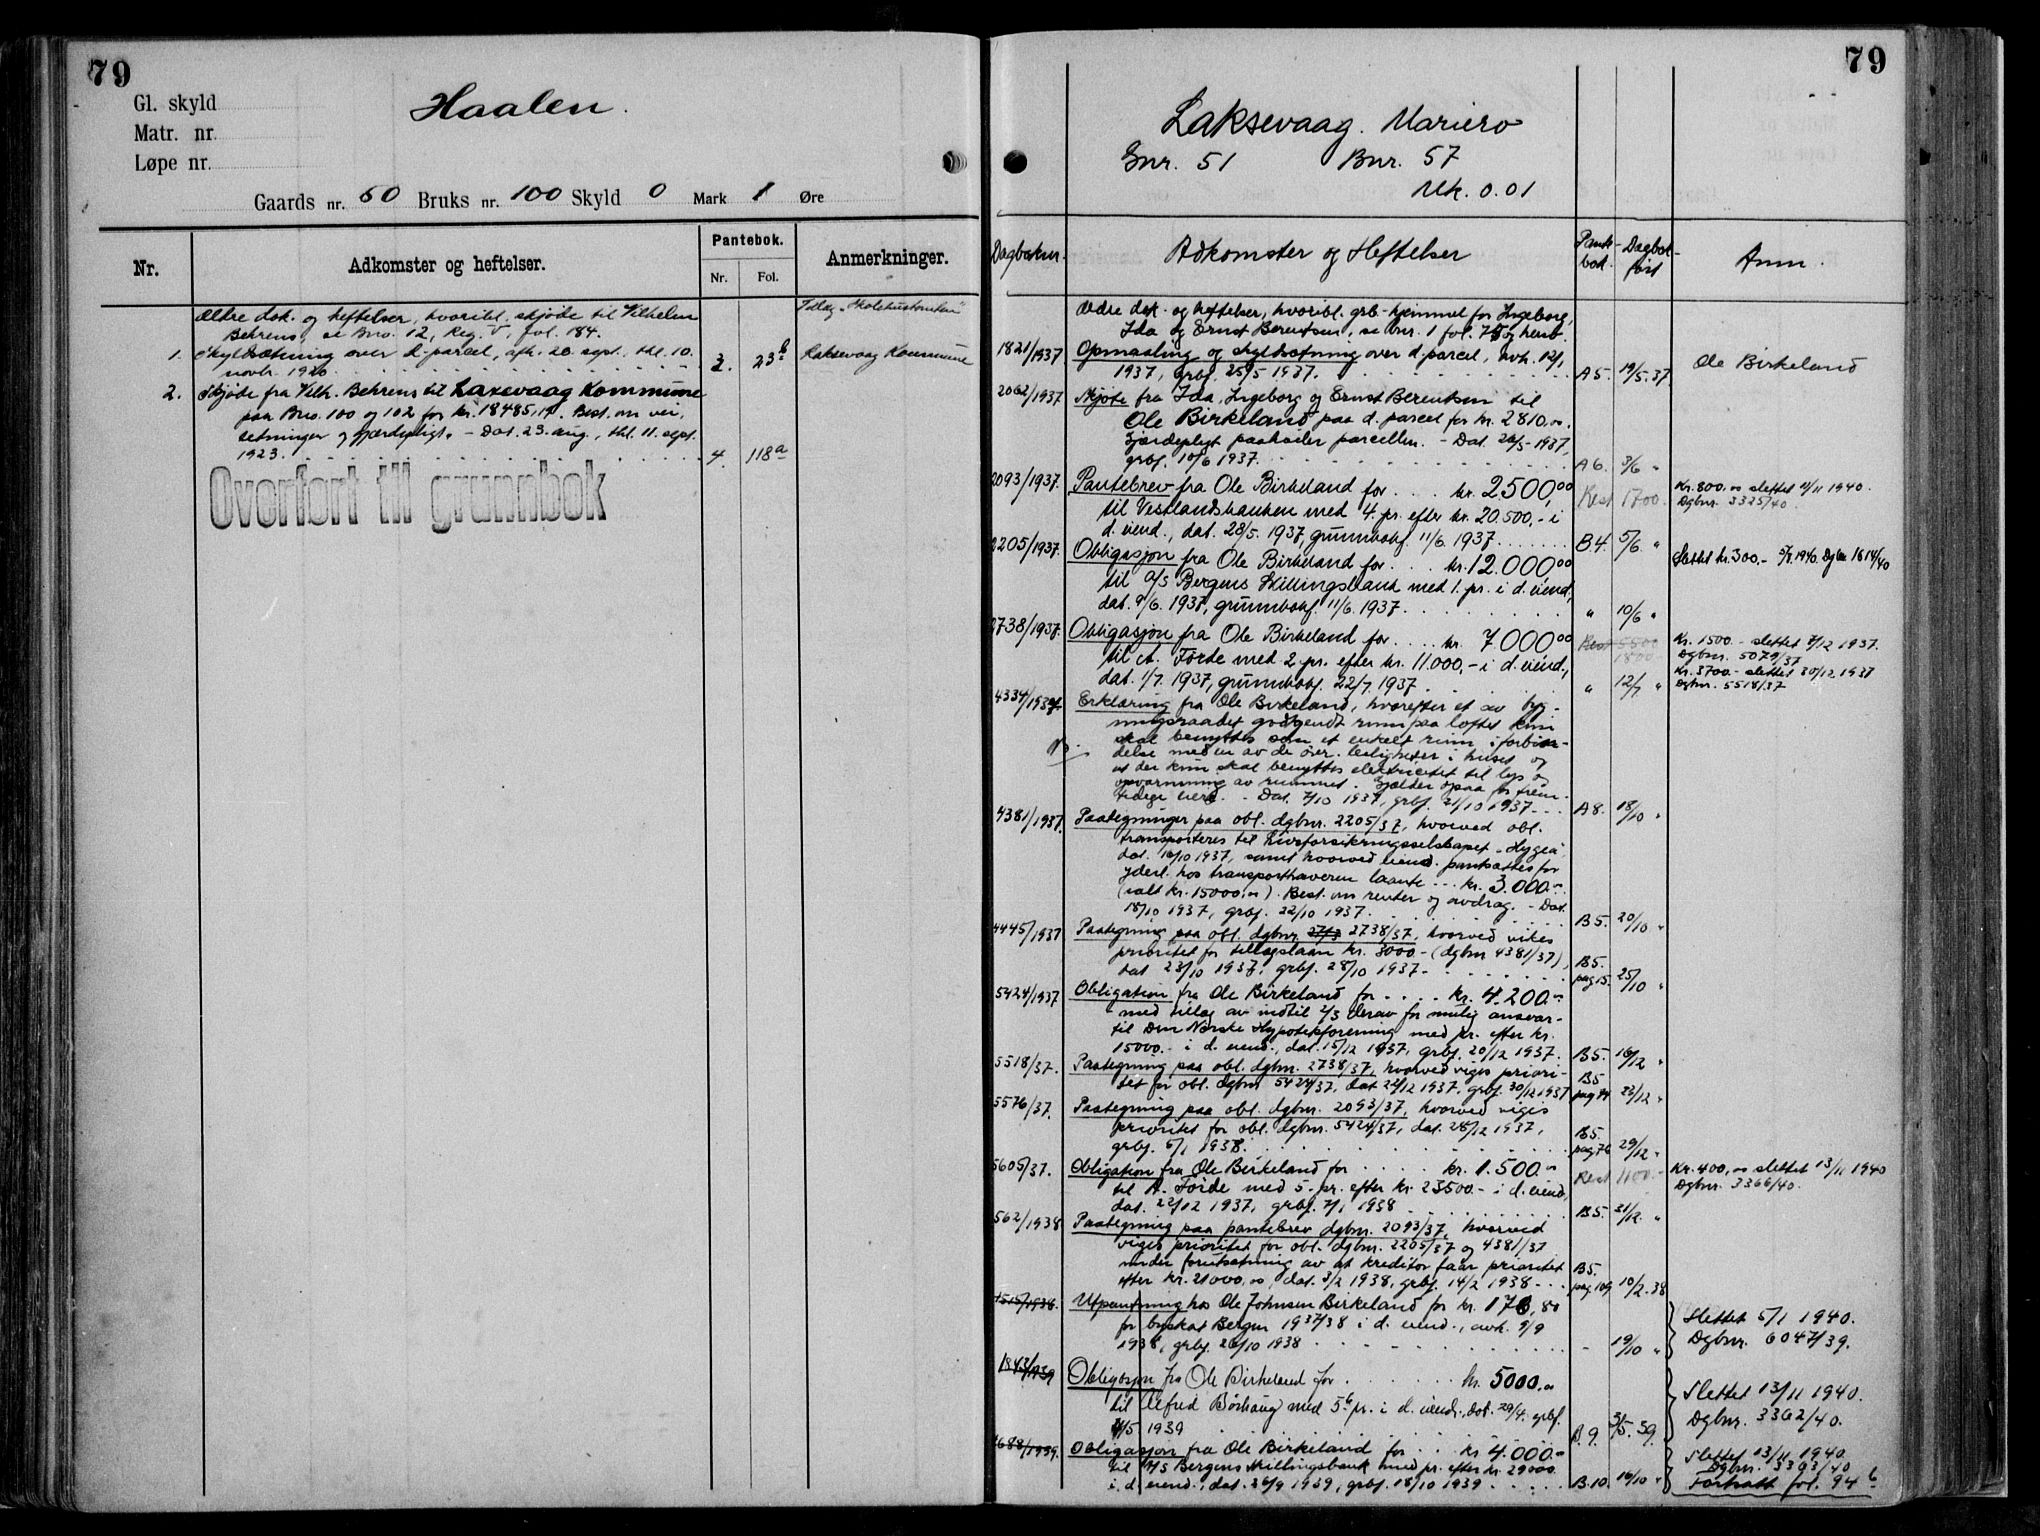 79
Gl. skyld
Matr. nr.
Løpe nr.
Haalen.
Gaards nr. 50 Bruks nr. 100 Skyld 0 Mark 1 Øre
Nr.
Adkomster og heftelser.
Pantebok.
Nr.
Fol.
Anmerkninger.
Ældre dok. og heftelser, hvoribl. skjøde til Vilhelm
Behrens, se Bno. 12, Reg. V, fol. 184.
1. Skyldsætning over d. parcel, afh. 20. sept., thl. 10.
novbr. 1920. 3. 23b
Laksevaag Kommune
2. Skjøde fra Vilh. Behrens til Laxevaag Kommune
paa Bno. 100 og 102 for kr. 18485,14. Best. om vei,
setninger og gjærdepligt. - Dat. 23. aug., thl. 11. sept.
1923. 4. 118a
Overført til grunnbok
79
Laksevaag. Mariero
Gnr. 51 Bnr. 57
Mk. 0.01
Dagboknr.
Adkomster og Heftelser
Pante-
bok.
Dagbok-
ført
Anm.
Ældre dok. og heftelser, hvoribl. grb-hjemmel for Ingeborg,
Ida og Ernst Berentsen, se bnr. 1 fol. 75 og henv.
1821/1937 Opmaaling og skyldsætning over d. parcel, avh. 12/1
1937, grbf. 25/5 1937. A 5. 19/5. 37. Ole Birkeland
2062/1937 Skjøte fra Ida, Ingeborg og Ernst Berentsen til
Ole Birkeland paa d. parcel for kr. 2810,00.
Gjærdepligt paahviler parcellen. - Dat. 26/5-1937,
grbf. 10/6 1937. A 6. 3/6 "
2093/1937. Pantebrev fra Ole Birkeland for . . . kr. 2500,00 Rest 1700.
Kr. 800,00 slettet 11/11 1940.
Dgbnr. 3325/40.
til Vestlandsbanken med 4. pr. efter kr. 20.500,- i
d. eiend., dat. 28/5. 1937, grunnbokf. 11/6. 1937. B 4. 5/6. "
2205/1937. Obligasjon fra Ole Birkeland for . . . kr. 12.000,00
Slettet kr. 300.- 5/7 1940. Dgbnr 1614/40
til A/S Bergens Skillingsbank med 1. pr. i d. eiend.,
dat. 9/6. 1937, grunnbokf. 11/6. 1937. " 10/6 "
2738/1937. Obligasjon fra Ole Birkeland for . . . . kr. 7000,00 Rest 5500
1800
Kr. 1500.- slettet 7/12 1937.
Dgbnr. 5079/37
til A. Førde med 2 pr. efter kr. 11.000,- i d. eiend.,
dat. 1/7. 1937, grunnbokf. 22/7. 1937 " 12/7 "
Kr. 3700.- slettet 30/12 1937
Dgbnr. 5518/37
4334/1937 Erklæring fra Ole Birkeland, hvorefter et av byg-
ningsraadet godkjendt rum paa loftet kun
skal benyttes som et enkelt rum i forbin-
delse med en av de øvr. leiligheter i huset og
at der kun skal benyttes elektricitet til lys og
opvarmning av rummet. Gjælder ogsaa for frem-
tidige eiere. - Dat. 7/10 1937, grbf. 21/10 1937 A 8. 18/10 "
4381/1937. Paategninger paa obl. dgbnr. 2205/37, hvorved obl.
transporteres til livsforsikringsselskapet „Hygea“
dat. 16/10 1937, samt hvorved eiend. pantsættes for
yderl. hos transporthaveren laante . . . kr. 3.000.-
(ialt kr. 15000,00). Best. om renter og avdrag. - Dat.
18/10 1937, grbf. 22/10 1937. B 5. 20/10 "
4445/1937 Paategning paa obl. dgbnr. 2738/37, hvorved vikes
prioritet for tillægslaan kr. 3000.- (dgbnr 4381/37),
dat. 23/10 1937, grbf. 28/10 1937. B 5. pag 15. 25/10 "
5424/1937 Obligation fra Ole Birkeland for . . . . kr. 4.200.-
med tillæg av indtil 2/3 derav for mulig ansvar
til Den Norske Hypotekforening med pr. efter kr.
15000.- i d. eiend., dat. 15/12 1937, grbf. 20/12 1937. B 5. 16/12 "
5518/37. Paategning paa obl. dgbnr. 2738/37, hvorved viges priori-
tet for obl. dgbnr 5424/37, dat 22/12 1937, grbf. 30/12 1937 B 5 22/12 "
5576/37. Paategning paa obl. dgbnr. 2093/37, hvorved viges
prioritet for obl. dgbnr. 5424/37, dat. 28/12 1937,
grbf. 5/1 1938. B 5. pag 76 29/12 "
5605/37. Obligation fra Ole Birkeland for . . . . . kr. 1.500.- Rest 1100.-
Kr. 400,00 slettet 13/11 1940
Dgbnr. 3366/40.
til A. Førde med 5. pr. efter kr. 23500.- i d. eiend,
dat. 22/12 1937, grbf. 7/1 1938 B 5. 31/12. "
562/1938 Paategning paa pantebrev dgbnr. 2093/37, hvorved
viges prioritet for obl. dgbnr. 2205/37 og 4381/37
under forutsætning av at kreditor faar prioritet
efter kr. 21000,00, dat. 3/2 1938, grbf. 14/2 1938 - - - B 5. pag 109 10/2. 38
1515/1938. Utpantning hos Ole Johnsen Birkeland for kr. 176,80
for byskat Bergen 1937/38 i d. eiend., avh. 9/9
1938, grbf. 26/10 1938 - 19/10 "
Slettet 5/1 1940.
Dgbnr. 6047/39.
1843/1939 Obligasjon fra Ole Birkeland for . . . . . . kr. 5000.00
til Alfred Børhaug med 5. pr. i d. eiend., dat. 29/4. grbf.
11/5 1939 B. 9. 3/5. 39.
Slettet 13/11 1940.
Dgbnr. 3362/40.
4688/1939. Obligasjon fra Ole Birkeland for . . . kr. 4.000.-
til A/S Bergens Skillingsbank med pr. efter kr. 29000
i d. eiend., dat. 26/9 1939, grbf. 18/10 1939 . . . . . B. 10. 16/10 "
Slettet 13/11 1940
Dgbnr. 3363/40
Fortsatt fol. 94 b